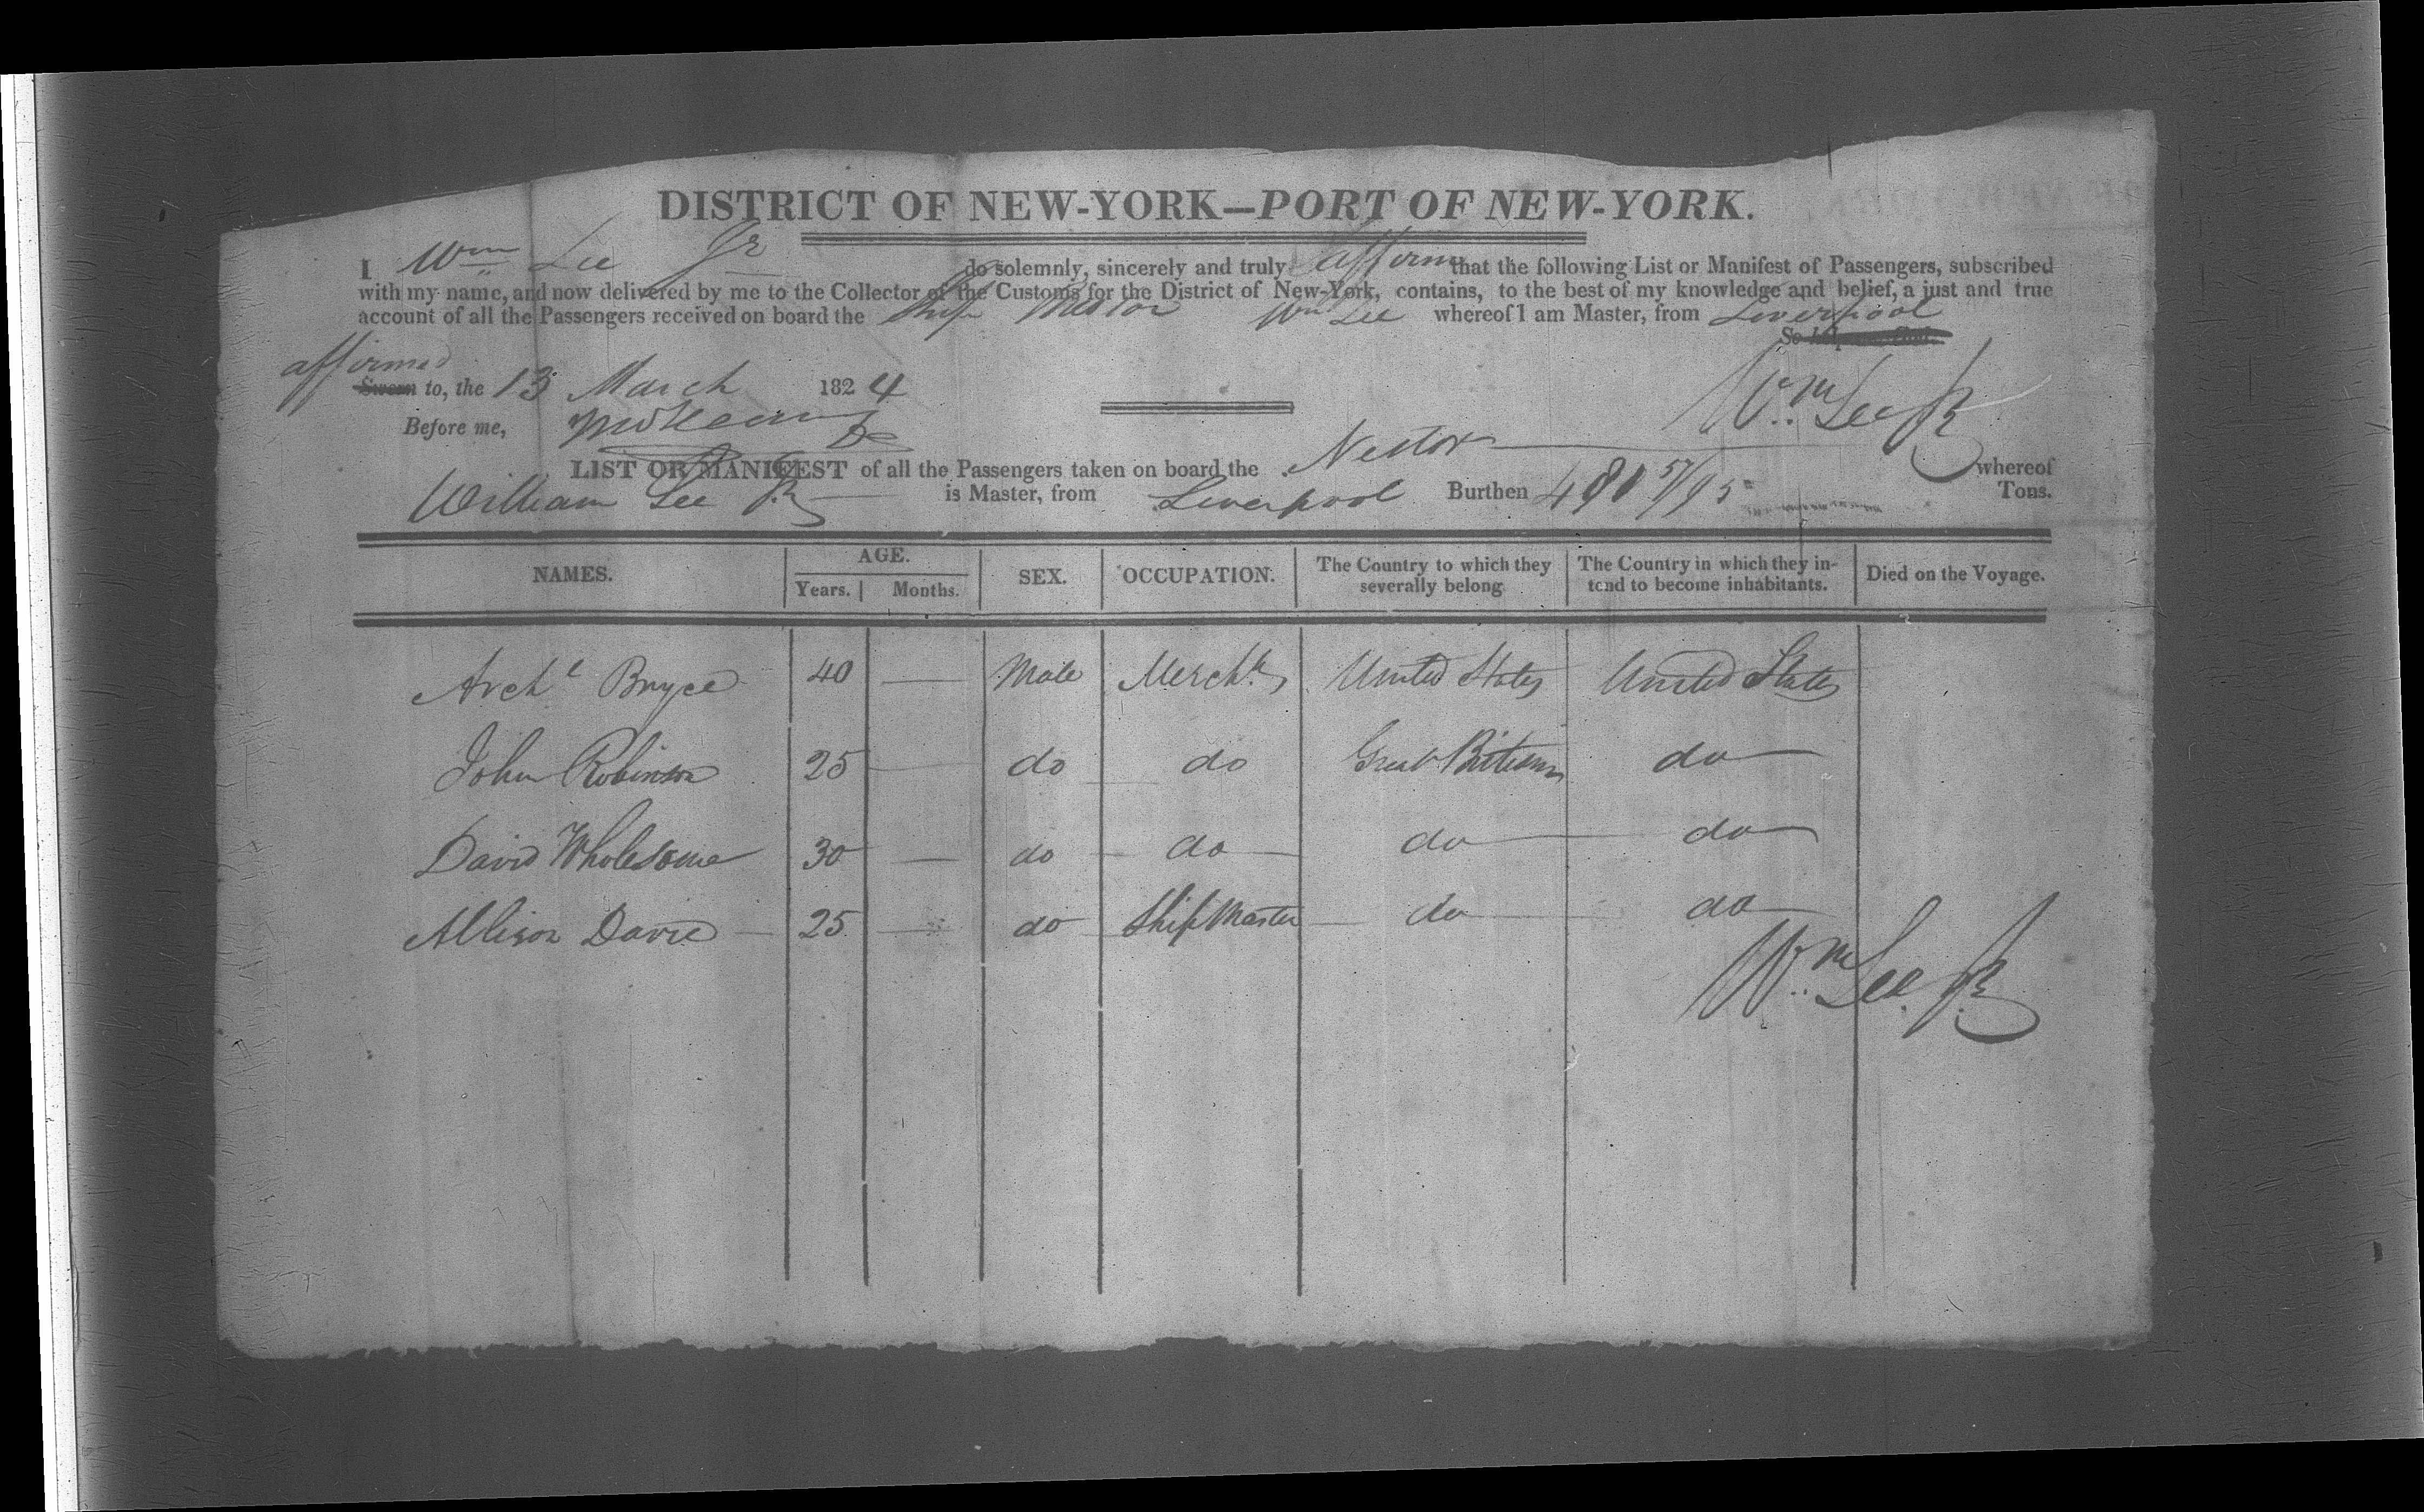 DISTRICT OF NEW-YORK—PORT OF NEW-YORK.
I Wm Lee Jr do solemnly, sincerely and truly affirm that the following List or Manifest of Passengers, subscribed
with my name, and now delivered by me to the Collector of the Customs for the District of New-York, contains, to the best of my knowledge and belief, a just and true
account of all the Passengers received on board the Ship Nestor Wm Lee whereof I am Master, from Liverpool
So help me God.
affirmed
Sworn to, the 13 March 1824
Wm Lee Jr
Before me,
LIST OR MANIFEST of all the Passengers taken on board the Nestor whereof
William Lee Jr is Master, from Liverpool Burthen 481 57/95 Tons.
NAMES. AGE. Years. Months. SEX. OCCUPATION. The Country to which they severally belong The Country in which they intend to become inhabitants. Died on the Voyage.
Archl Bryce 40 — Male Merchts United States United States
John Robinson 25 — do do Great Britain do
David Wholesome 30 — do do do do
Allison Davie 25 — do Ship Master do do
Wm Lee Jr